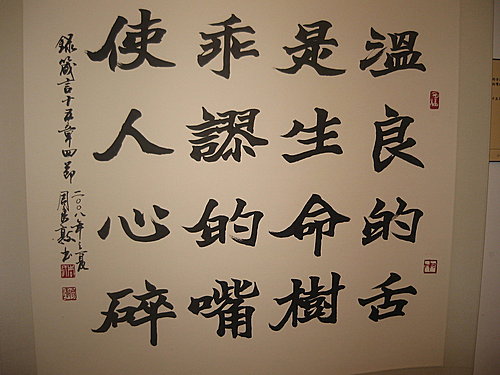 溫良的舌
是生命樹
乖謬的嘴
使人心碎
錄箴言十五章四節
二〇〇八年之夏
周